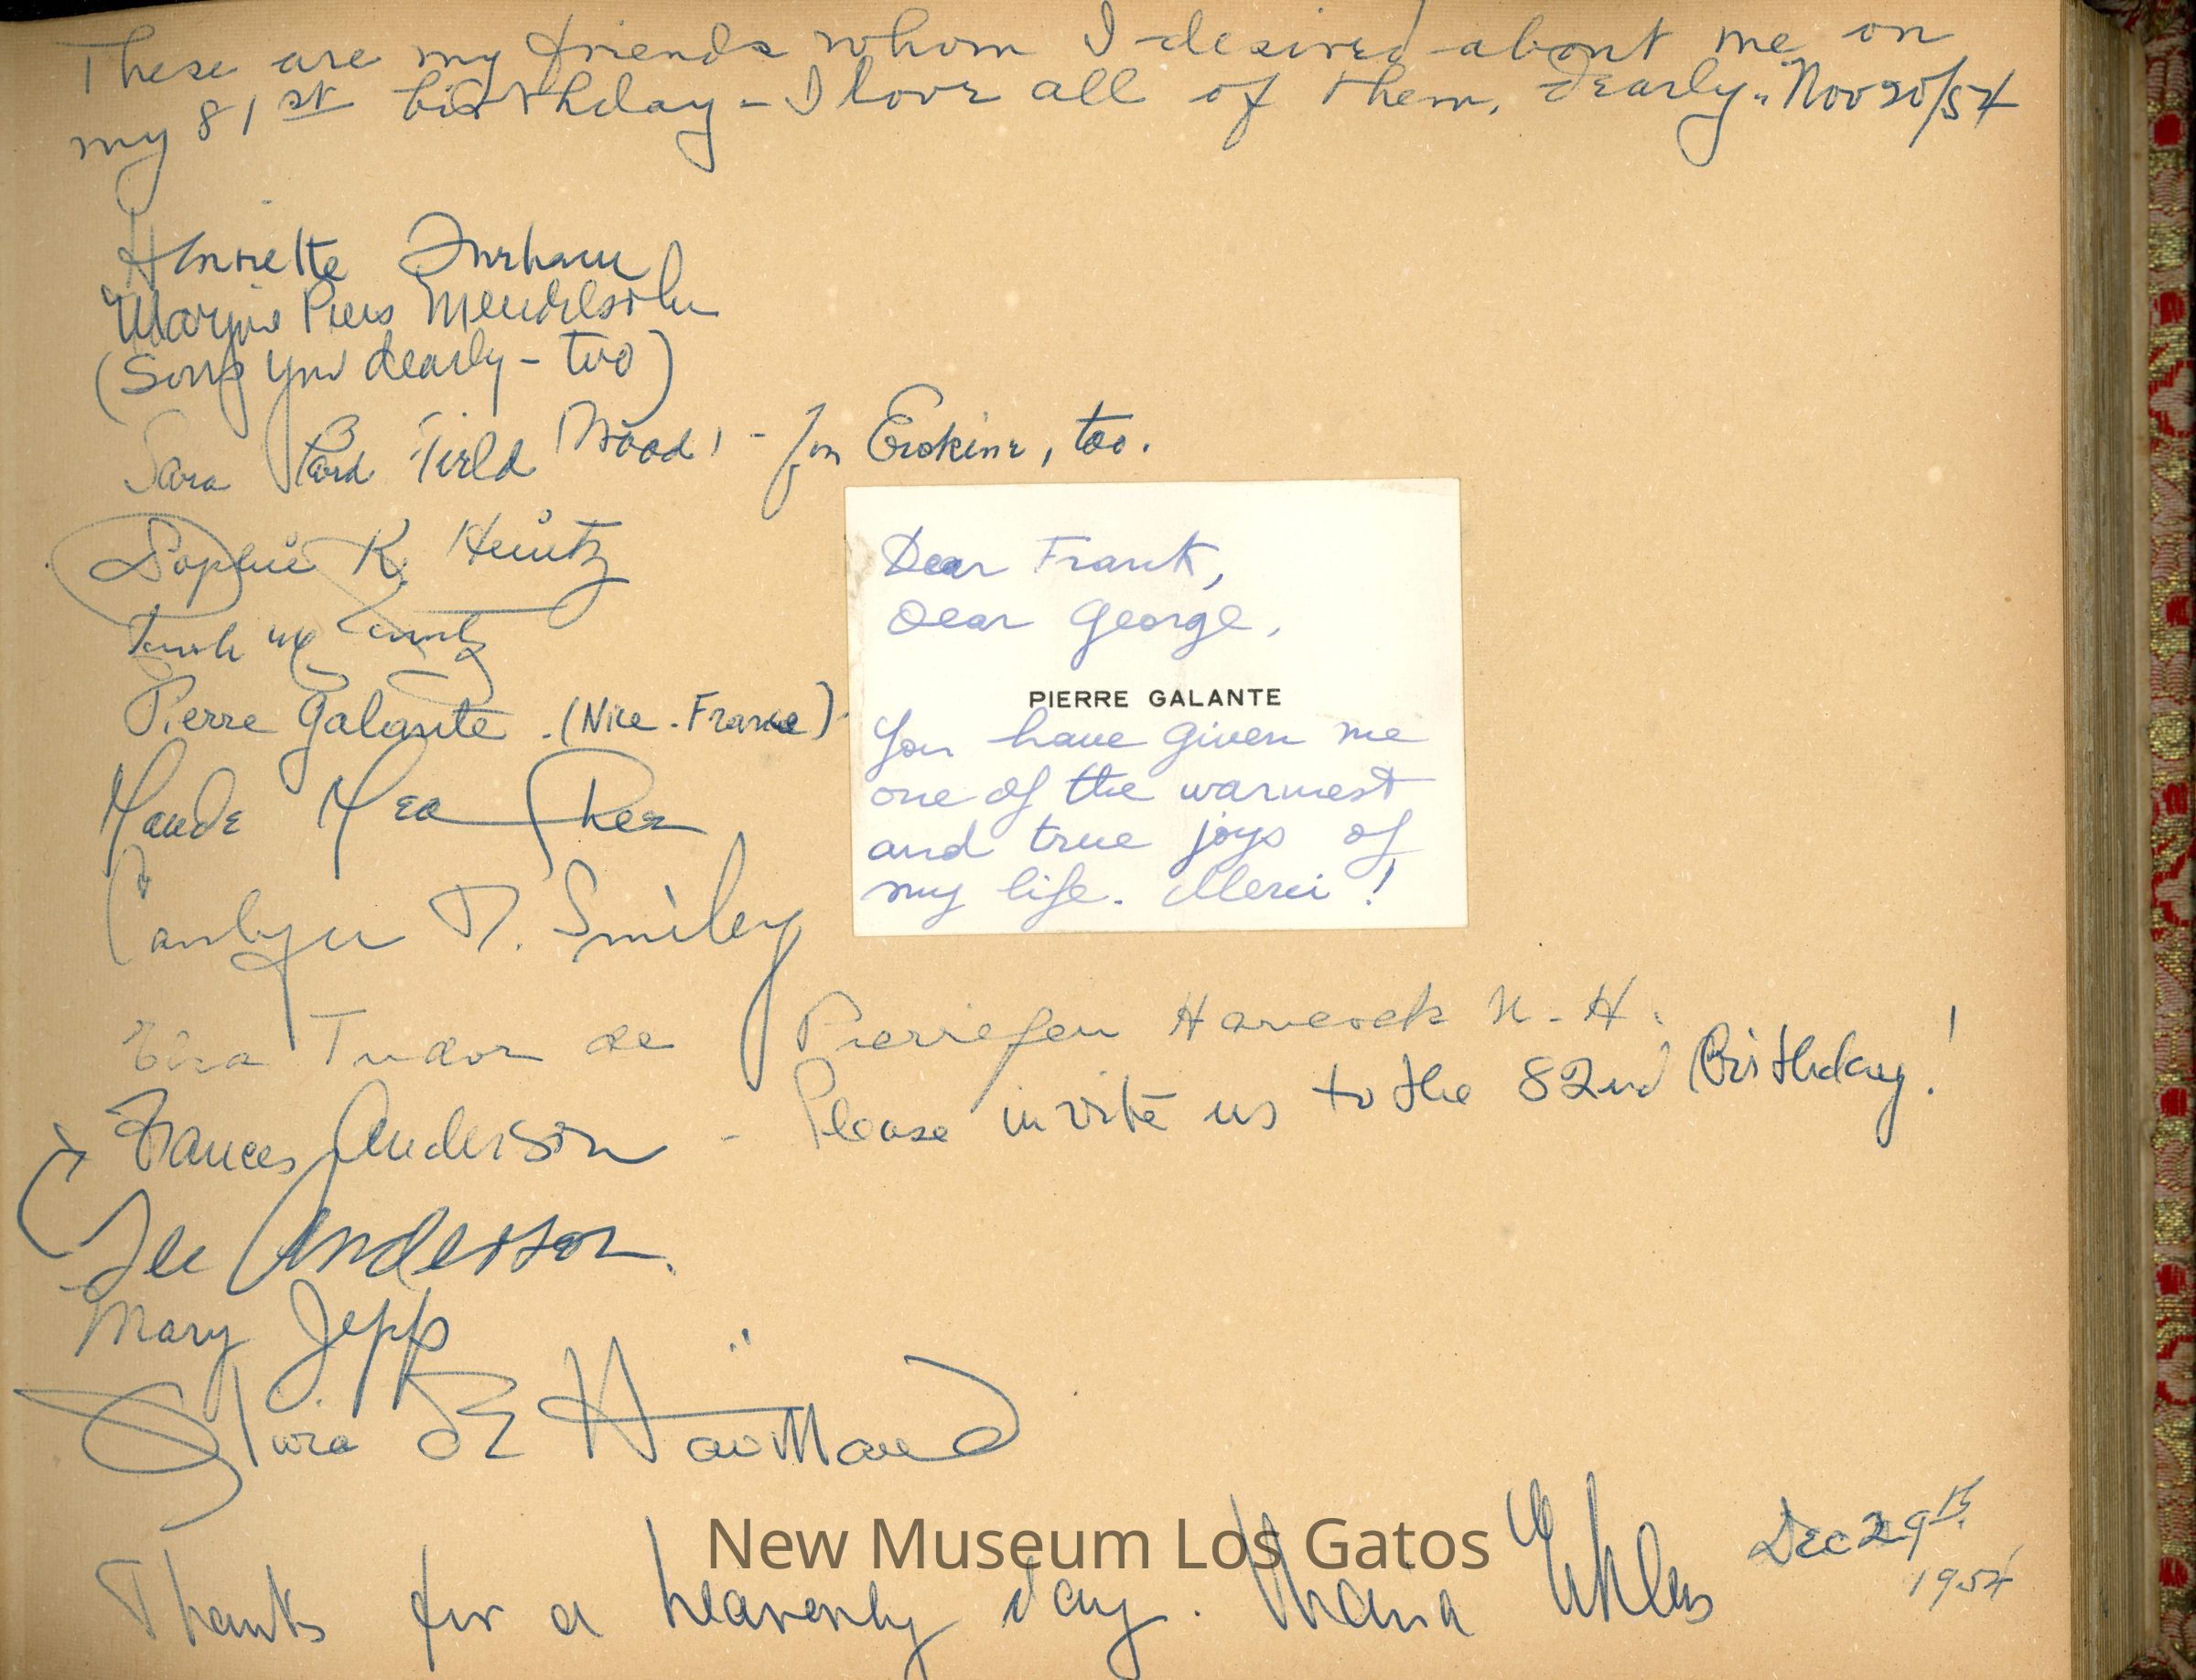 These are my friends whom I desired about me on
my 81st birthday - I love all of them, dearly. Nov 20/54
Henriette Durham
Marjie Piers Mendelsohn
(Song you dearly - too)
Sara Bard Field Wood - for Erskine, too.
Sophie K. Heintz
Pierre Galante. (Nice - France)
Dear Frank,
Dear George,
PIERRE GALANTE
You have given me
one of the warmest
and true joys of
my life. Merci!
Maude
Carolyn D. Smiley
Elsa Tudor de Pierrefeu Hancock N. H.
Frances Anderson - Please invite us to the 82nd Birthday!
Lee Anderson.
Mary Jepp
Thanks for a heavenly day. Maria Dec 29th
1954
New Museum Los Gatos